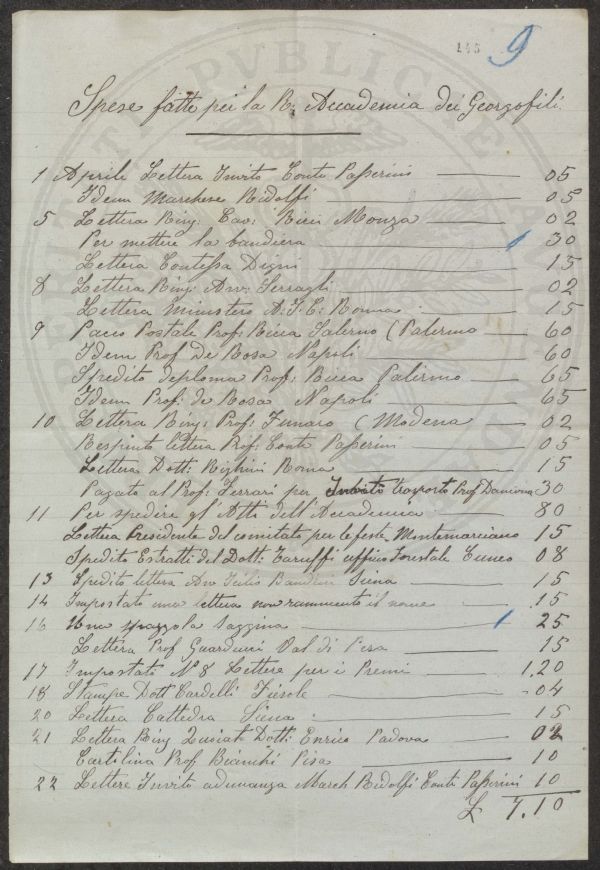 145 9
Spese fatte per la R. Accademia dei Georgofili.
1 Aprile Lettera Invito Conte Passerini 05
Idem Marchese Ridolfi 05
5 Lettera Ring: Cav: Ricci Monza 02
Per mettere la bandiera 30
Lettera Contessa Digny 15
8 Lettera Ring: Avv: Serragli 02
Lettera Ministero A: I: C: Roma 15
9 Pacco Postale Prof: Ricca Salerno (Palermo 60
Idem Prof De Rosa Napoli 60
Spedito deploma Prof: Ricca Palermo 65
Idem Prof: de Rosa Napoli 65
10 Lettera Ring: Prof: Funaro (Modena 02
Respinto lettera Prof: Conte Passerini 05
Lettera Dott: Righini Roma 15
Pagato al Prof: Ferrari per trasporto Prof Damiona 30
11 Per spedire gl'Atti dell'Accademia 80
Lettera Presidente del comitato per le feste Montemarciano 15
Spedito Estratti del Dott: Taruffi uffico Forestale Cuneo 08
13 Spedito lettera Avv Tulio Bandini Siena 15
14 Impostato una lettera non rammento il nome 15
16 Una spazzola saggina 25
Lettera Prof Guarducci Val di Pesa 15
17 Impostato N° 8 Lettere per i Premi 1.20
18 Stampe Dott Cardelli Fiesole 04
20 Lettera Cattedra Siena : 15
21 Lettera Ring Dott: Enrico Padova 02
Cartolina Prof Bianchi Pisa 10
22 Lettere Invito adunanza March Ridolfi Conte Passerini 10
£ 7.10